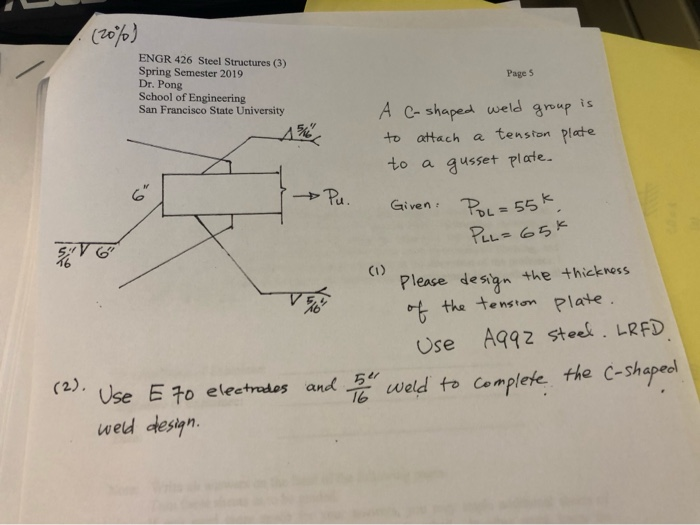 (20%)
ENGR 426 Steel Structures (3)
Spring Semester 2019
Dr. Pong
School of Engineering
San Francisco State University
Page 5
A C-shaped weld group is
to attach a tension plate
to a gusset plate.
Given: PDL = 55 K.
PLL = 65 K
5/16"
6"
→ Pu.
5/16" 6"
5/16"
(1) Please design the thickness
of the tension plate.
Use A992 steel. LRFD.
(2). Use E70 electrodes and 5/16" weld to complete the C-shaped
weld design.